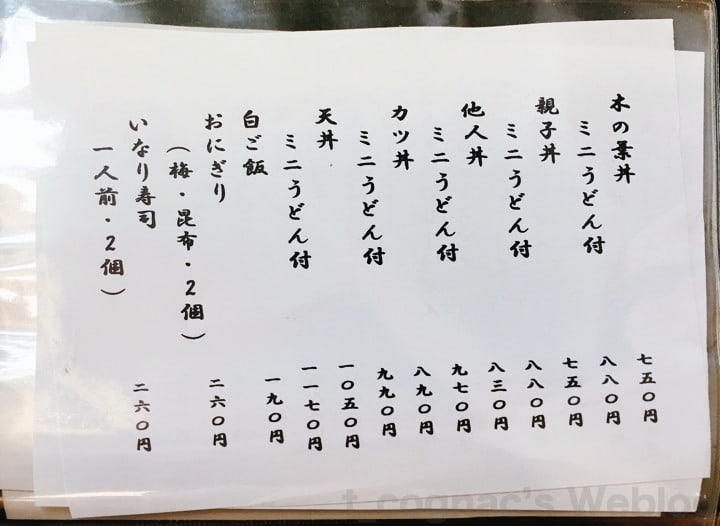 木の葉丼 七五〇円
ミニうどん付 八八〇円
親子丼 七五〇円
ミニうどん付 八八〇円
他人丼 八三〇円
ミニうどん付 九七〇円
カツ丼 八九〇円
ミニうどん付 九九〇円
天丼 一〇五〇円
ミニうどん付 一一七〇円
白ご飯 一九〇円
おにぎり 二六〇円
（梅・昆布・2個）
いなり寿司 二六〇円
一人前・2個）
t.cognac's Weblog